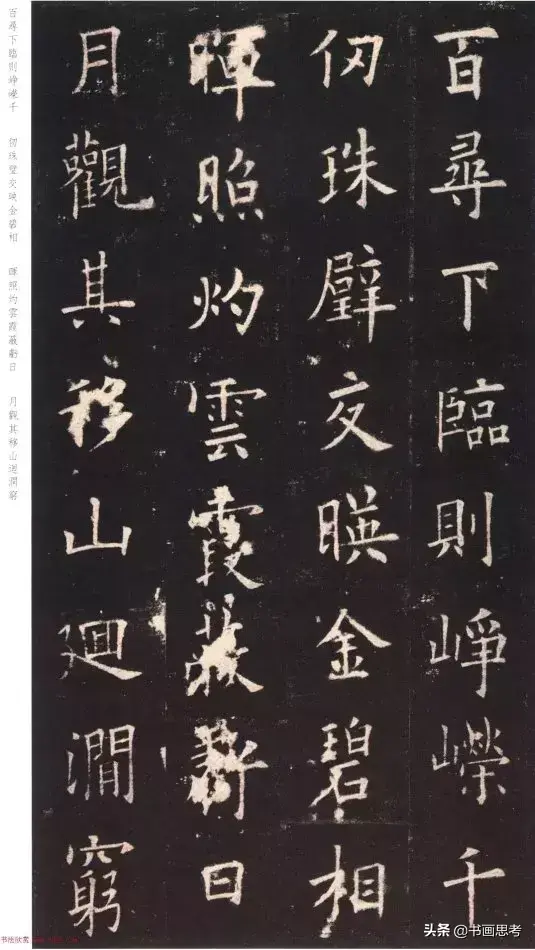 百尋下臨則崢嶸千
仞珠璧交暎金碧相
暉照灼雲霞蔽虧日
月觀其移山廻澗窮
百尋下臨則崢嶸千 仞珠璧交映金碧相 暉照灼雲霞蔽虧日 月觀其移山迴澗窮
书法欣赏
头条 @书画思考